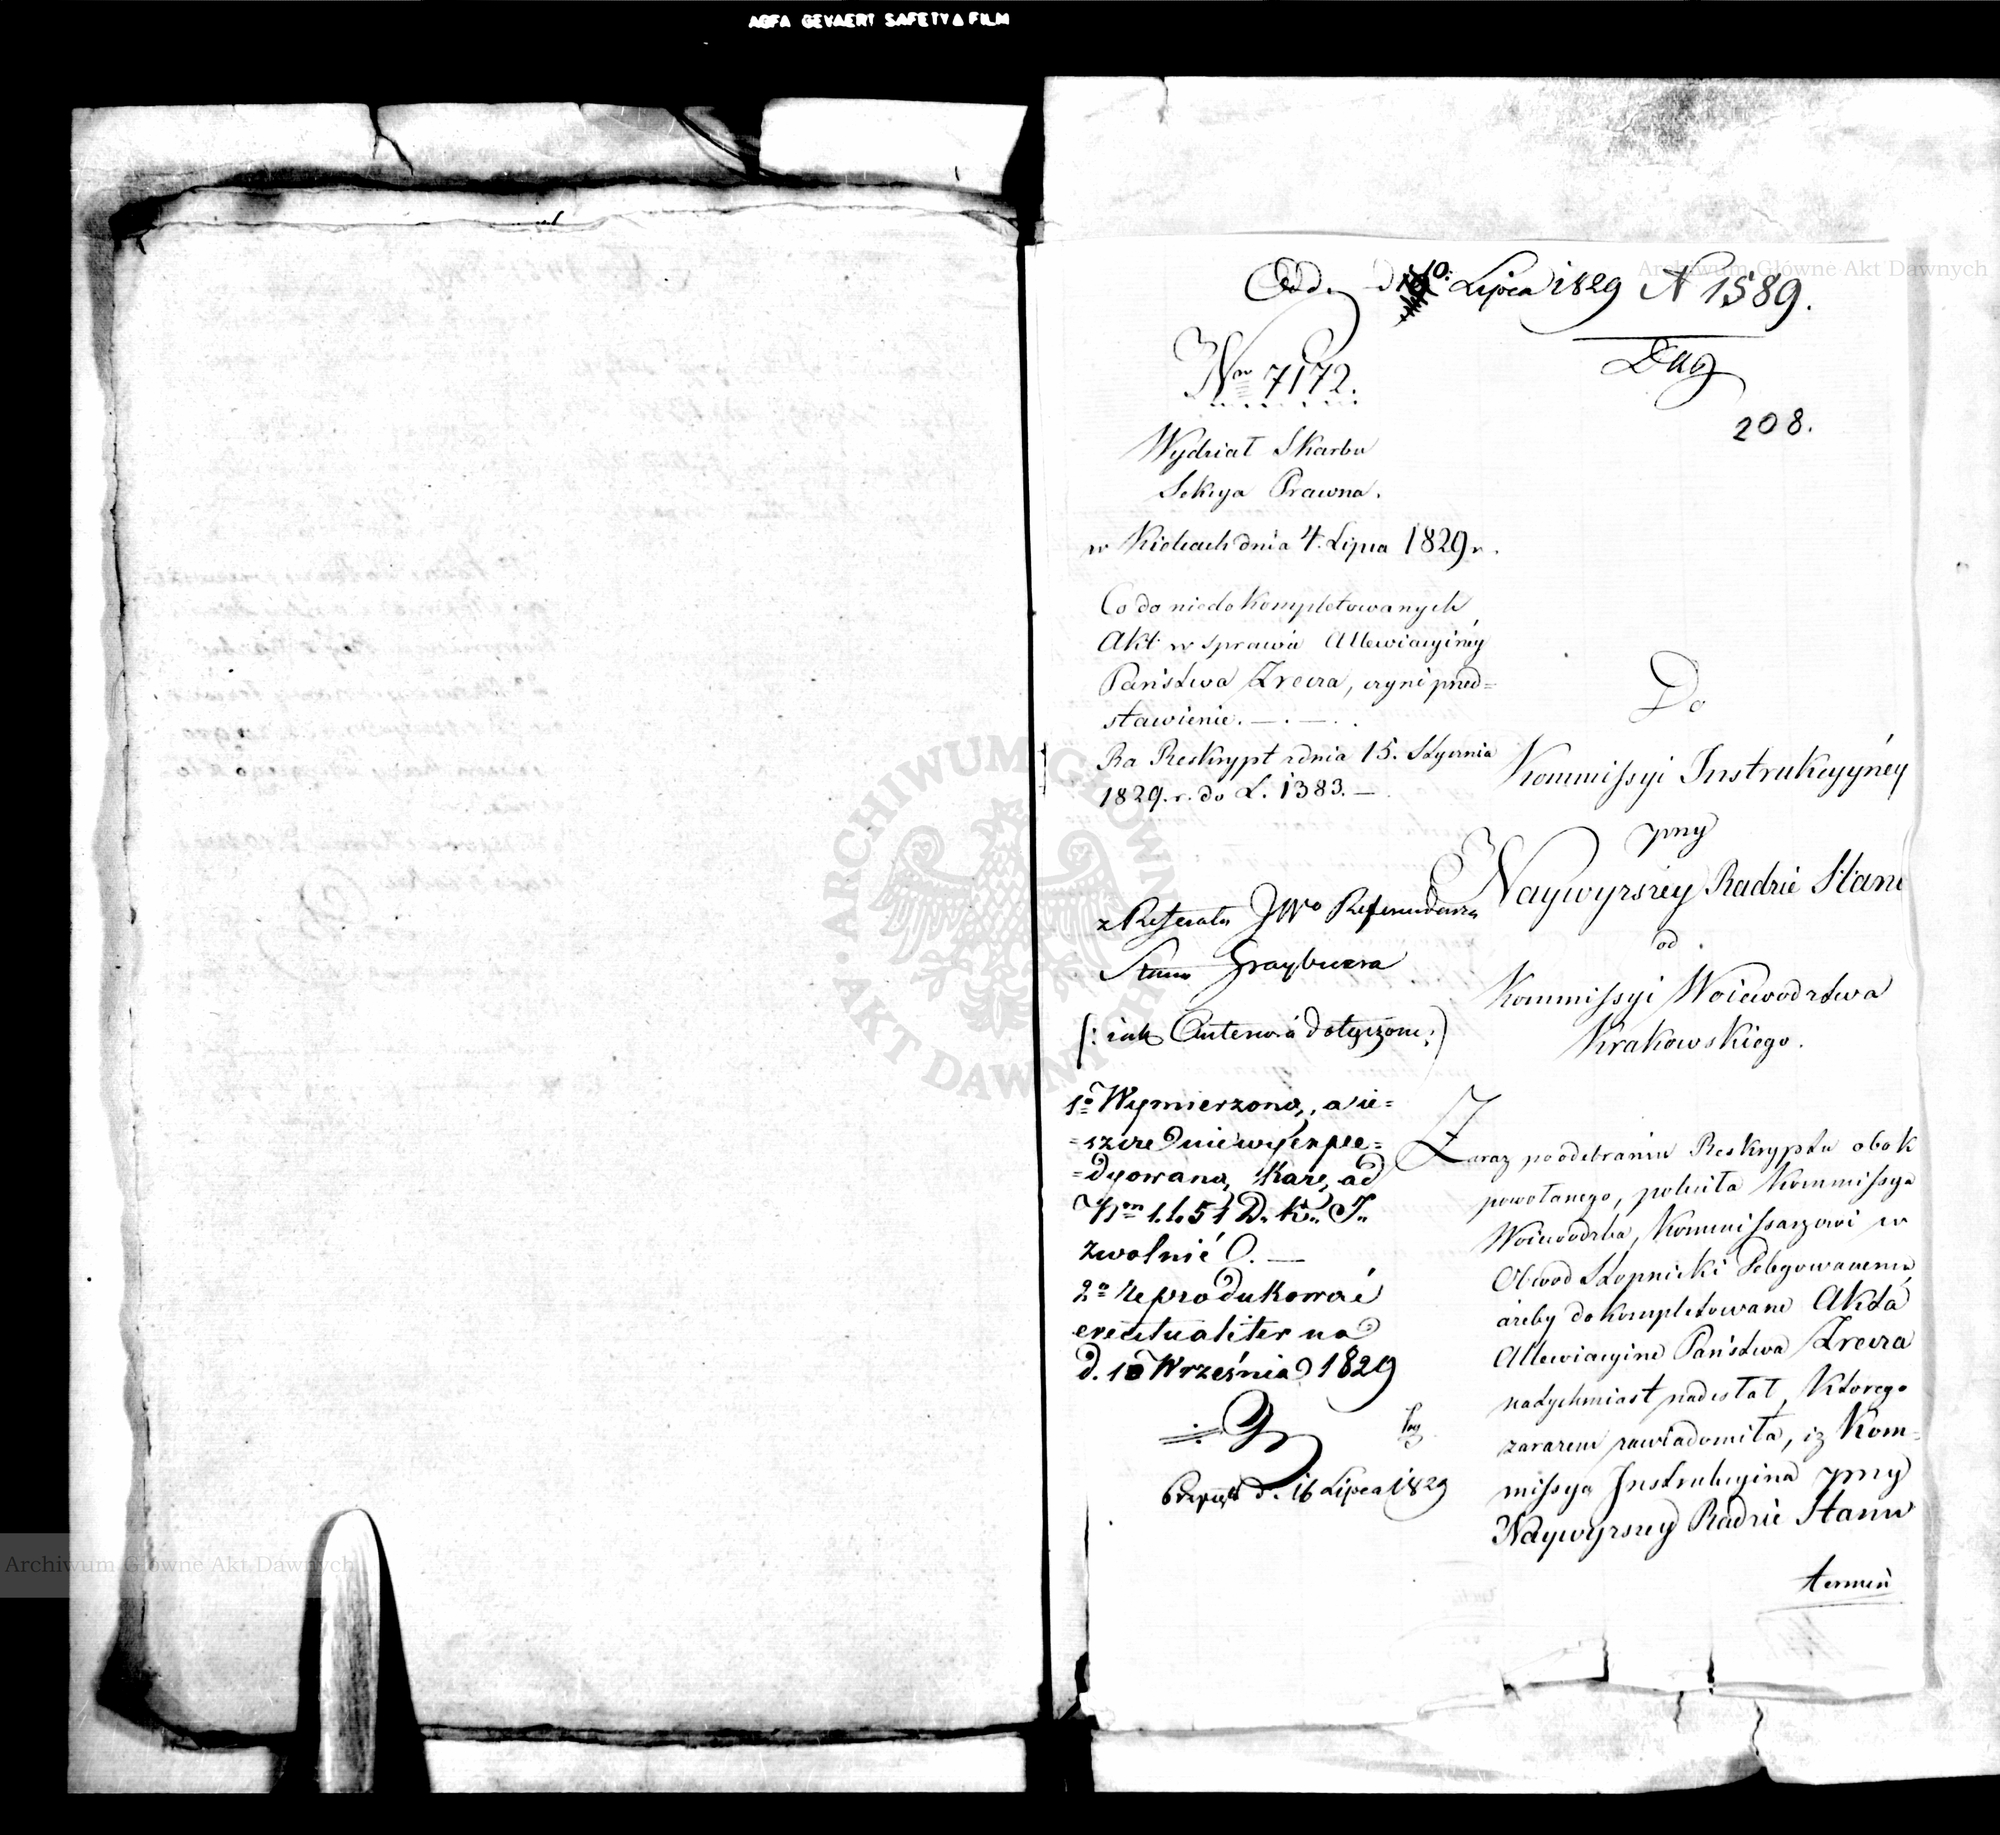 AGFA GEVAERT SAFETY FILM
Archiwum Główne Akt Dawnych
Odd. d. 10. Lipca 1829 N 1589.
Dug
208.
Nro 7172.
Wydział Skarbu
Sekcya Prawna.
w Kielcach dnia 4. Lipca 1829 r.
Co do niedokompletowanych
Akt w sprawie Allewiacyinéy
Państwa Zrecza, czyni przed=
stawienie. —.—.
Na Reskrypt z dnia 15. Stycznia
1829. r. do L. 1383. —
z Referatu JWo Referendarza
Stanu
(: iak dotyczące :)
1o Wymierzoną, a ie=
=szcze nie wyexpe=
=dyowaną, karę, ad
Nrm 1451 D. K. I.
zwolnić O. —
2o reprodukować
eventualiter na
d. 10 Września 1829
d. 16 Lipca 1829
Do
Kommissyi Instrukcyynéy
przy
Naywyższey Radzie Stanu
od
Kommissyi Woiewodztwa
Krakowskiego.
Zaraz po odebraniu Reskryptu obok
powołanego, poleciła Kommissya
Woiewodzka, Kommissarzowi w
Obwod Stopnicki Delegowanemu
ażeby dokompletowane Akta
Allewiacyine Państwa Zrecza
natychmiast nadesłał, którego
zarazem zawiadomiła, iż Kom=
missya Instrukcyina przy
Naywyższey Radzie Stanu
termin
ARCHIWUM GŁÓWNE AKT DAWNYCH
Archiwum Główne Akt Dawnych